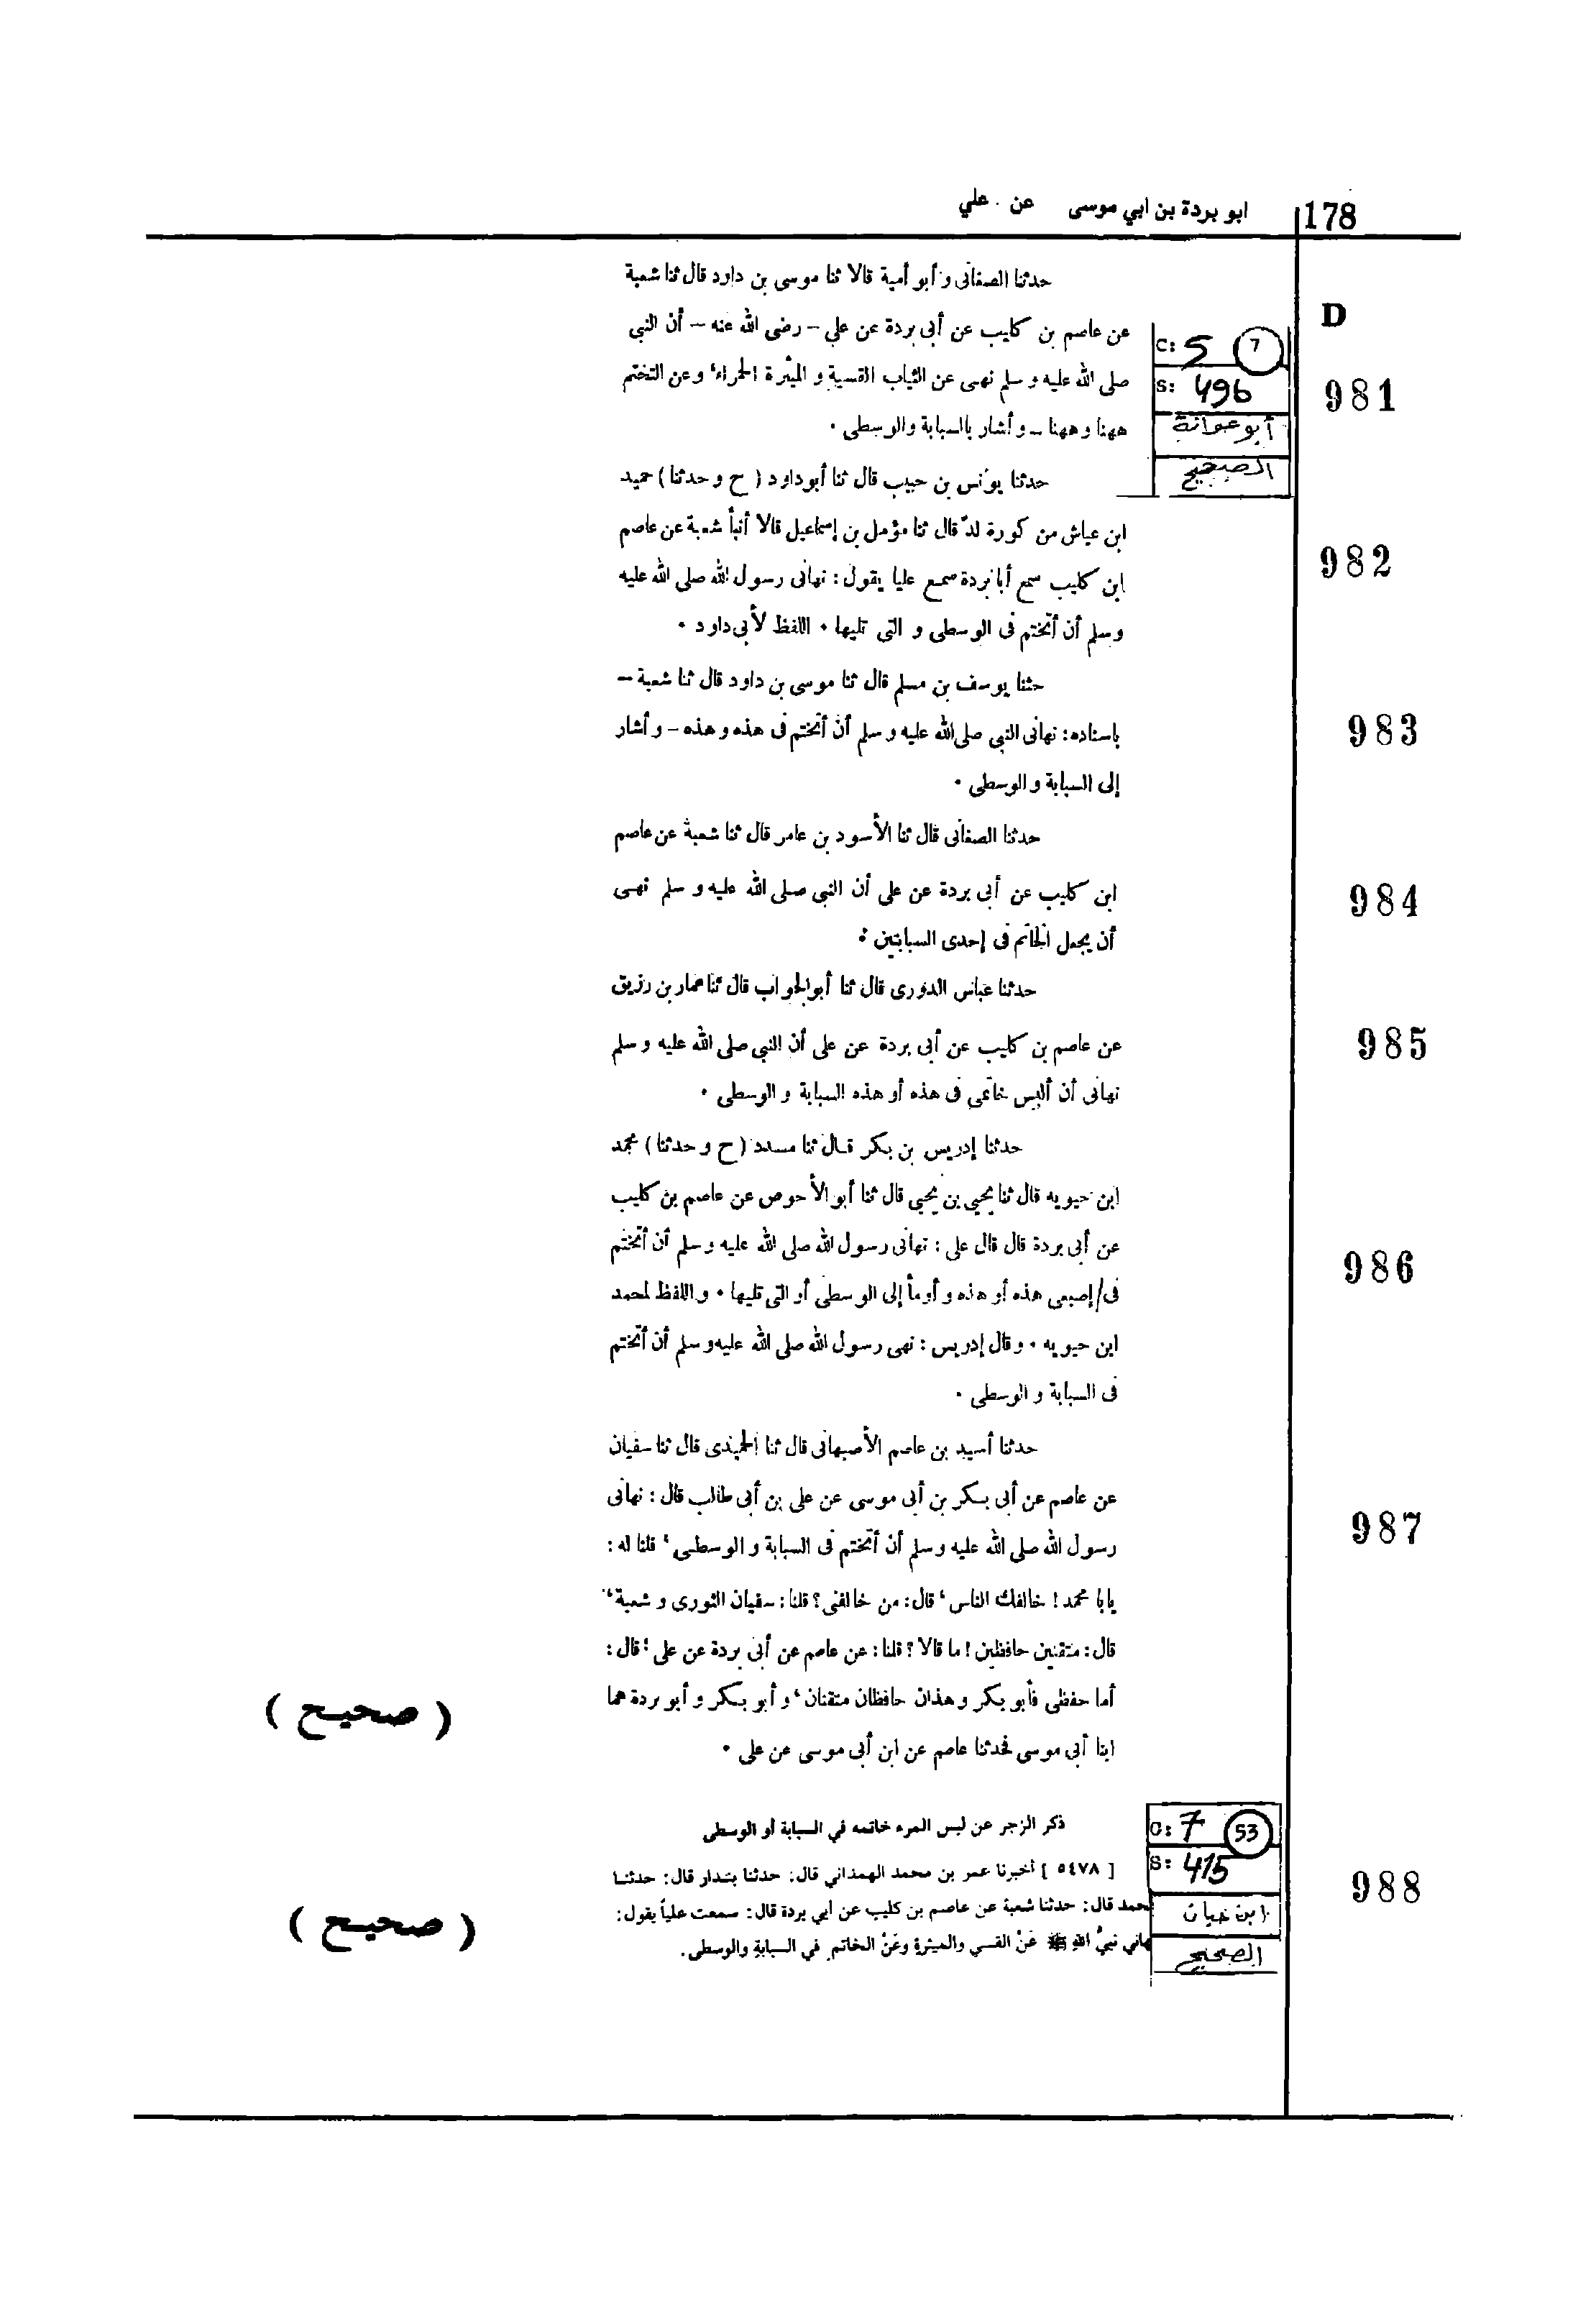 178
ابو بردة بن ابي موسى عن . علي
D
حدثنا الصغانى و أبو أمية قالا ثنا موسى بن داود قال ثنا شعبة
عن عاصم بن كليب عن أبى بردة عن علي – رضى الله عنه – أن النبي
C: 5 7
صلى الله عليه و سلم نهى عن الثياب القسية و الميثرة الحمراء، وعن التختم
S: 496
981
ههنا وههنا – و أشار بالسبابة والوسطى .
أبو عوانة
الصحيح
حدثنا يونس بن حبيب قال ثنا أبوداود ( ح و حدثنا ) حميد
ابن عياش من كورة لدّ قال ثنا مؤمل بن إسماعيل قالا أنبأ شعبة عن عاصم
982
ابن كليب سمع أبا بردة سمع عليا يقول : نهانى رسول الله صلى الله عليه
وسلم أن أتختم فى الوسطى و التى تليها . اللفظ لأبى داود .
حثنا يوسف بن مسلم قال ثنا موسى بن داود قال ثنا شعبة –
983
باسناده : نهانى النبي صلى الله عليه و سلم أن أتختم فى هذه و هذه – و أشار
إلى السبابة و الوسطى .
حدثنا الصغانى قال ثنا الأسود بن عامر قال ثنا شعبة عن عاصم
984
ابن كليب عن أبى بردة عن على أن النبى صلى الله عليه و سلم نهى
أن يجعل الخاتم فى إحدى السبابتين .
حدثنا عباس الدورى قال ثنا أبوالجواب قال ثنا عمار بن رزيق
985
عن عاصم بن كليب عن أبى بردة عن على أن النبى صلى الله عليه و سلم
نهانى أن ألبس خاتمى فى هذه أو هذه السبابة و الوسطى .
حدثنا إدريس بن بكر قال ثنا مسدد ( ح و حدثنا ) محمد
ابن حيويه قال ثنا يحيى بن يحيى قال ثنا أبو الأحوص عن عاصم بن كليب
عن أبى بردة قال قال على : نهانى رسول الله صلى الله عليه و سلم أن أتختم
986
فى/ إصبعى هذه أو هذه و أومأ إلى الوسطى أو التى تليها . و اللفظ لمحمد
ابن حيويه . وقال إدريس : نهى رسول الله صلى الله عليه و سلم أن أتختم
فى السبابة و الوسطى .
حدثنا أسيد بن عاصم الأصبهانى قال ثنا الحميدى قال ثنا سفيان
عن عاصم عن أبى بكر بن أبى موسى عن على بن أبى طالب قال : نهانى
987
رسول الله صلى الله عليه وسلم أن أتختم فى السبابة و الوسطى، قلنا له :
يابا محمد ! خالفك الناس، قال : من خالفنى ؟ قلنا : سفيان الثورى و شعبة،
قال : متقنين حافظين ! ما قالا ؟ قلنا : عن عاصم عن أبى بردة عن على ؛ قال :
أما حفظى فأبو بكر و هذان حافظان متقنان، و أبو بكر و أبو بردة هما
( صحيح )
ابنا أبى موسى فحدثنا عاصم عن ابن أبى موسى عن على .
ذكر الزجر عن لبس المرء خاتمه في السبابة أو الوسطى
C: 7 53
[ ٥٤٧٨ ] أخبرنا عمر بن محمد الهمداني قال : حدثنا بندار قال : حدثنا
S: 415
988
محمد قال : حدثنا شعبة عن عاصم بن كليب عن أبي بردة قال : سمعت علياً يقول :
ابن حبان
( صحيح )
هاني نبيُّ اللهِ ﷺ عَنْ القسي والميثرة وعَنْ الخاتم في السبابةِ والوسطى .
الصحيح